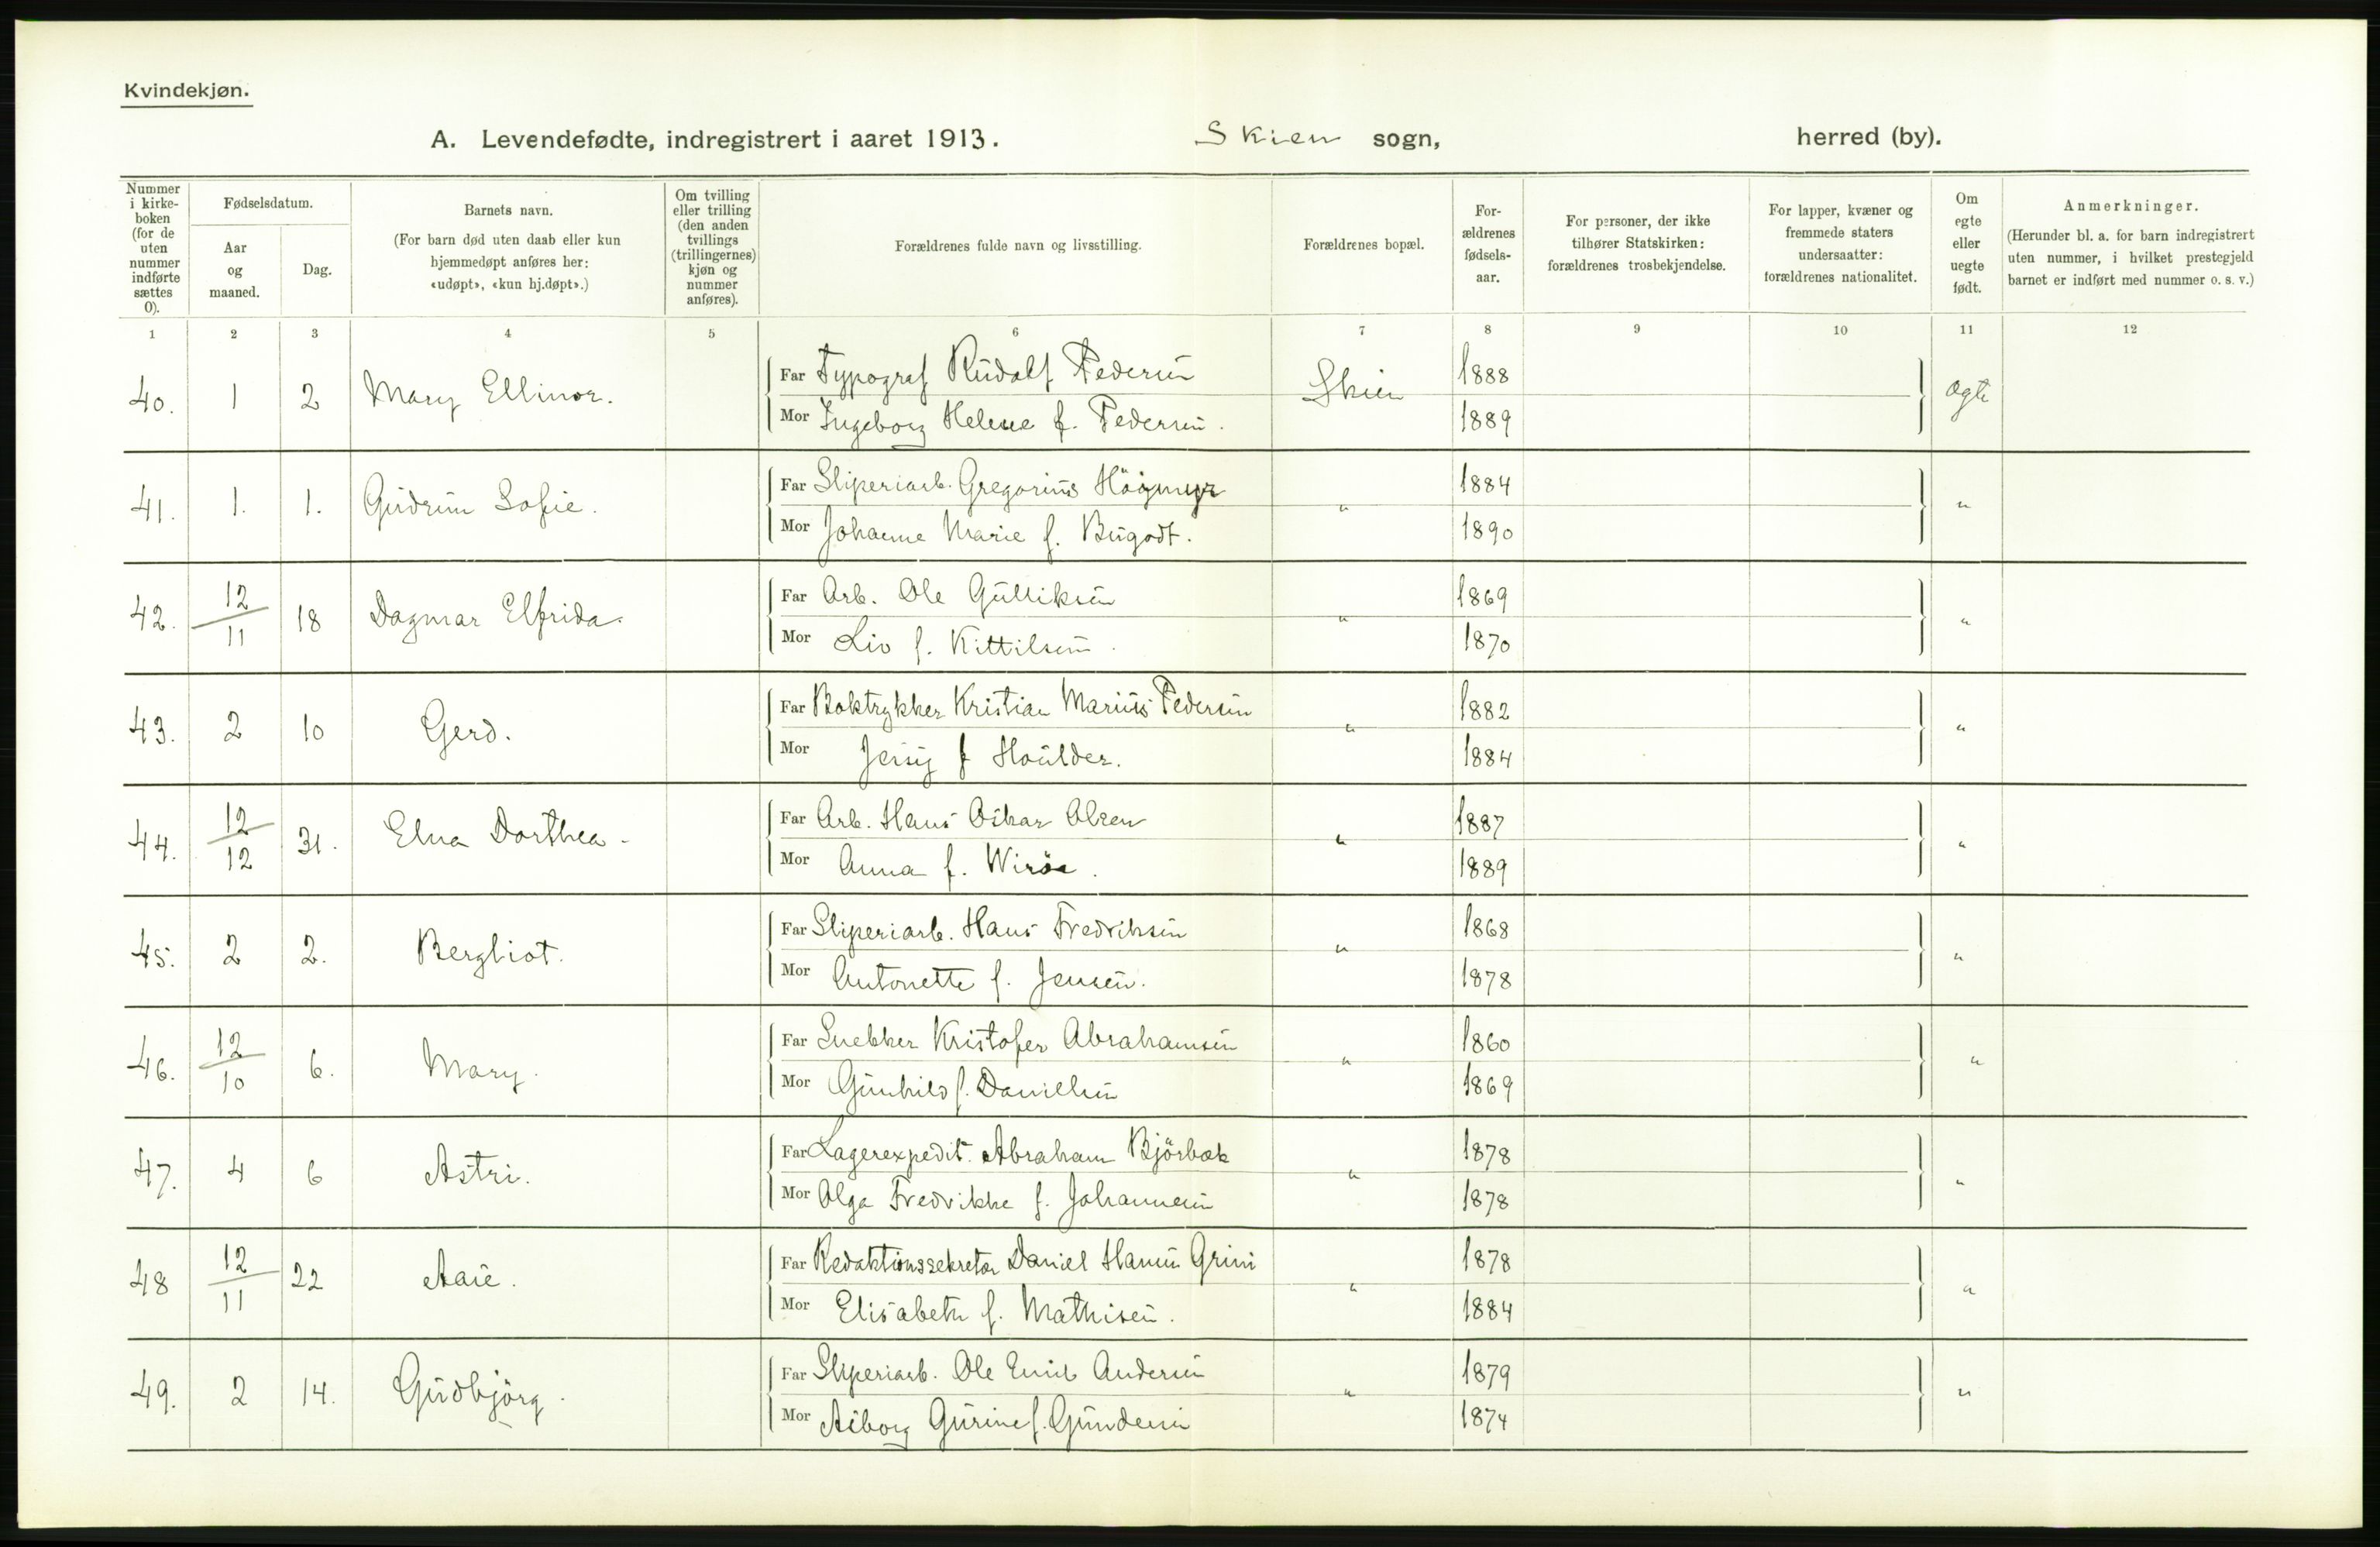 Kvindekjøn.
A. Levendefødte, indregistrert i aaret 1913. Skien sogn, herred (by).
Nummer i kirke-boken (for de uten nummer indførte sættes 0).
Fødselsdatum.
Aar og maaned.
Dag.
Barnets navn.
(For barn død uten daab eller kun hjemmedøpt anføres her: «udøpt», «kun hj.døpt».)
Om tvilling eller trilling (den anden tvillings (trillingernes) kjøn og nummer anføres).
Forældrenes fulde navn og livsstilling.
Forældrenes bopæl.
For-ældrenes fødsels-aar.
For personer, der ikke tilhører Statskirken: forældrenes trosbekjendelse.
For lapper, kvæner og fremmede staters undersaatter: forældrenes nationalitet.
Om egte eller uegte født.
Anmerkninger.
(Herunder bl. a. for barn indregistrert uten nummer, i hvilket prestegjeld barnet er indført med nummer o. s. v.)
1 2 3 4 5 6 7 8 9 10 11 12
40. 1 2 Mary Ellinor. Far Typograf Rudolf Pedersen Skien 1888 Ægte
Mor Ingeborg Helene f. Pedersen. 1889
41. 1. 1. Gudrun Sofie. Far Sliperiarb. Gregorius Högmyr " 1884 "
Mor Johanne Marie f. Bugodt. 1890
42. 12/11 18 Dagmar Elfrida. Far Arb. Ole Gulliksen " 1869 "
Mor Liv f. Kittilsen. 1870
43. 2 10 Gerd. Far Boktrykker Kristian Marius Pedersen " 1882 "
Mor f Houlder. 1884
44. 12/12 31. Elna Dorthea. Far Arb. Hans Oskar Olsen " 1887 "
Mor Anna f. 1889
45. 2 2. Bergliot. Far Sliperiarb. Hans Fredriksen " 1868 "
Mor Antonette f. Jensen. 1878
46. 12/10 6. Mary. Far Snekker Kristofer Abrahamsen " 1860 "
Mor Gunhild f. Danielsen 1869
47. 4 6 Astri. Far Lagerexpedit. Abraham Björbæk " 1878 "
Mor Olga Fredrikke f. Johannesen 1878
48 12/11 22 Aase. Far Redaktionssekretær Daniel Hansen Grini " 1878 "
Mor Elisabeth f. Mathisen. 1884
49. 2 14. Gudbjörg. Far Sliperiarb. Ole Emil Andersen " 1879 "
Mor Asborg Gurine f. Gundersen 1874